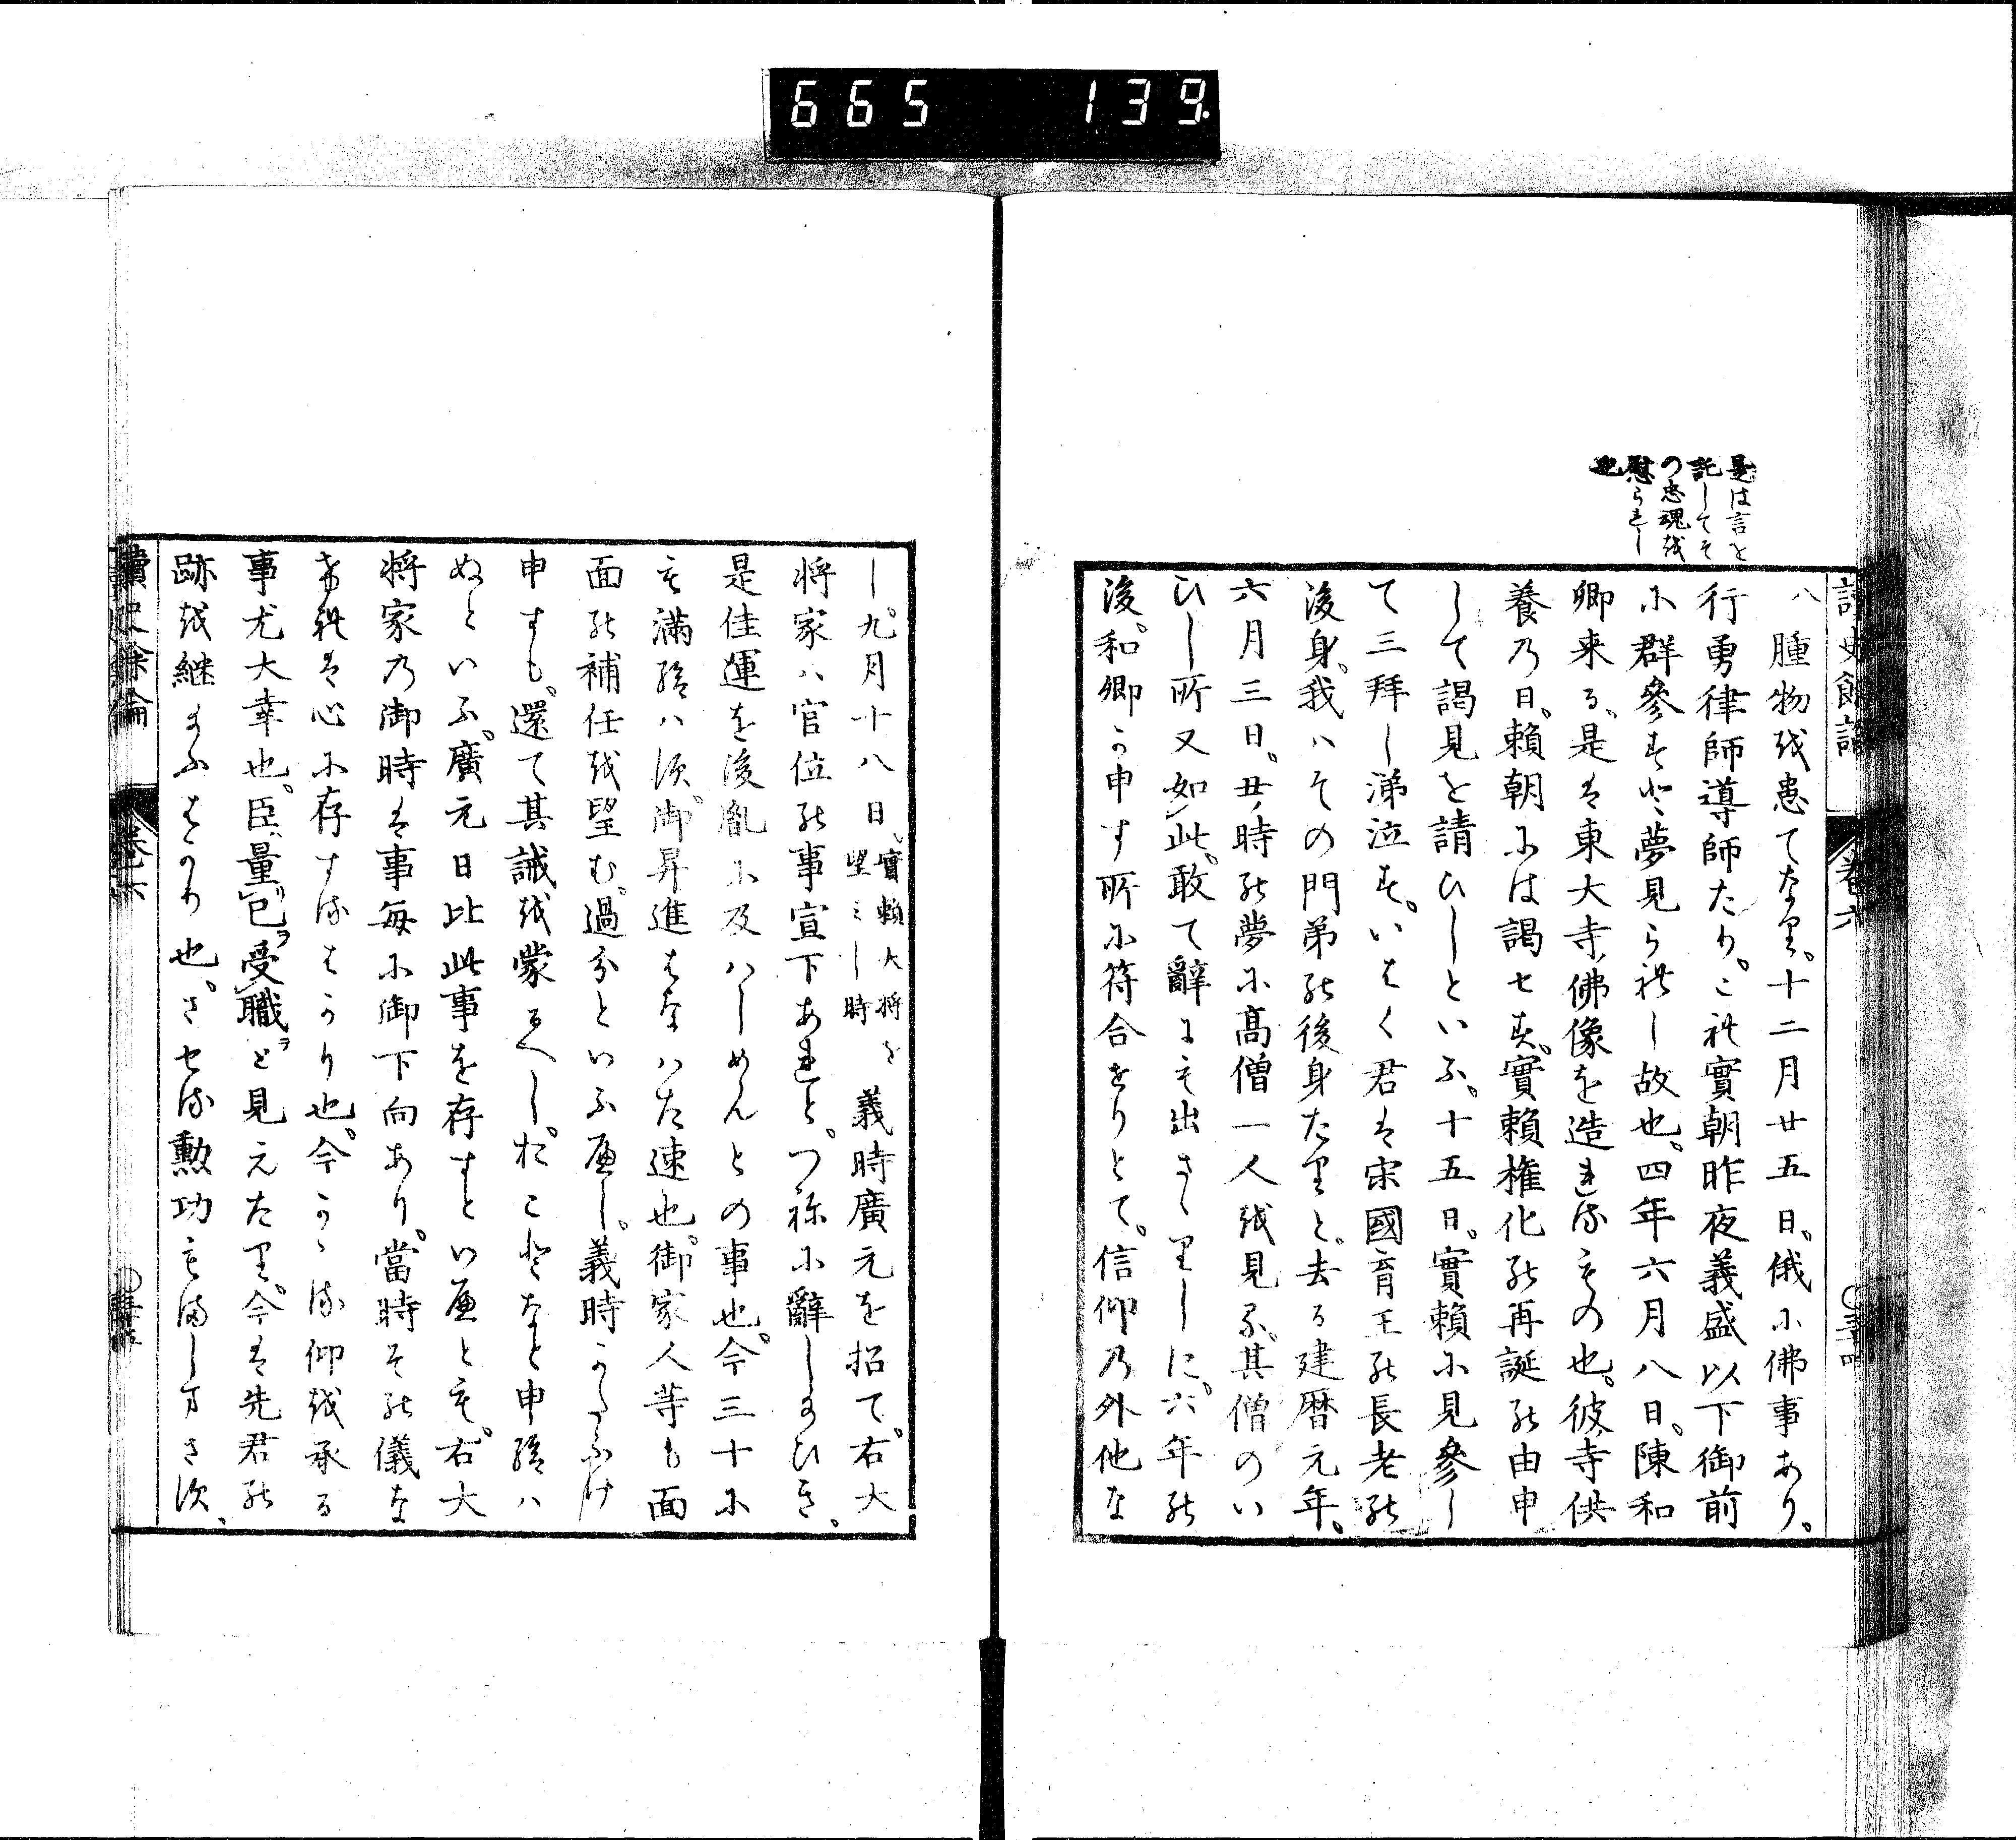 665 139
是は言を
託してそ
の忠魂を
慰られし
也
讀史餘論 卷六
ハ腫物を患てなり。十二月廿五日。俄に佛事あり。
行勇律師導師たり。これ實朝昨夜義盛以下御前
に群參すと夢見られし故也。四年六月八日。陳和
卿来る。是は東大寺佛像を造れるもの也。彼寺供
養の日。賴朝には謁せず。實賴權化の再誕の由申
して謁見を請ひしといふ。十五日。實賴に見參し
て三拜し涕泣す。いはく君は宋國育王の長老の
後身。我ハその門弟の後身たりと。去る建暦元年。
六月三日。丑ノ時の夢に高僧一人を見る。其僧のい
ひし所又如此。敢て辭にも出さゝりしに。六年の
後。和卿か申す所に符合せりとて。信仰の外他な
し。九月十八日。實賴大將を望みし時義時廣元を招て。右大
將家ハ官位の事宣下あれと。つねに辭したまひき。
是佳運を後胤に及ハしめんとの事也。今三十に
も滿給ハす。御昇進はなハた速也。御家人等も面
面の補任を望む。過分といふへし。義時かたふけ
申すも。還て其誡を蒙るへし。おことなと申給ハ
ぬといふ。廣元日比此事を存すといへとも。右大
將家の御時は事毎に御下向あり。當時その儀な
けれは心に存するはかり也。今かゝる仰を承る
事尤大幸也。臣量リ己ヲ受職ヲと見えたり。今は先君の
跡を継たまふはかり也。させる勲功もましまさす、
讀史餘論 卷六